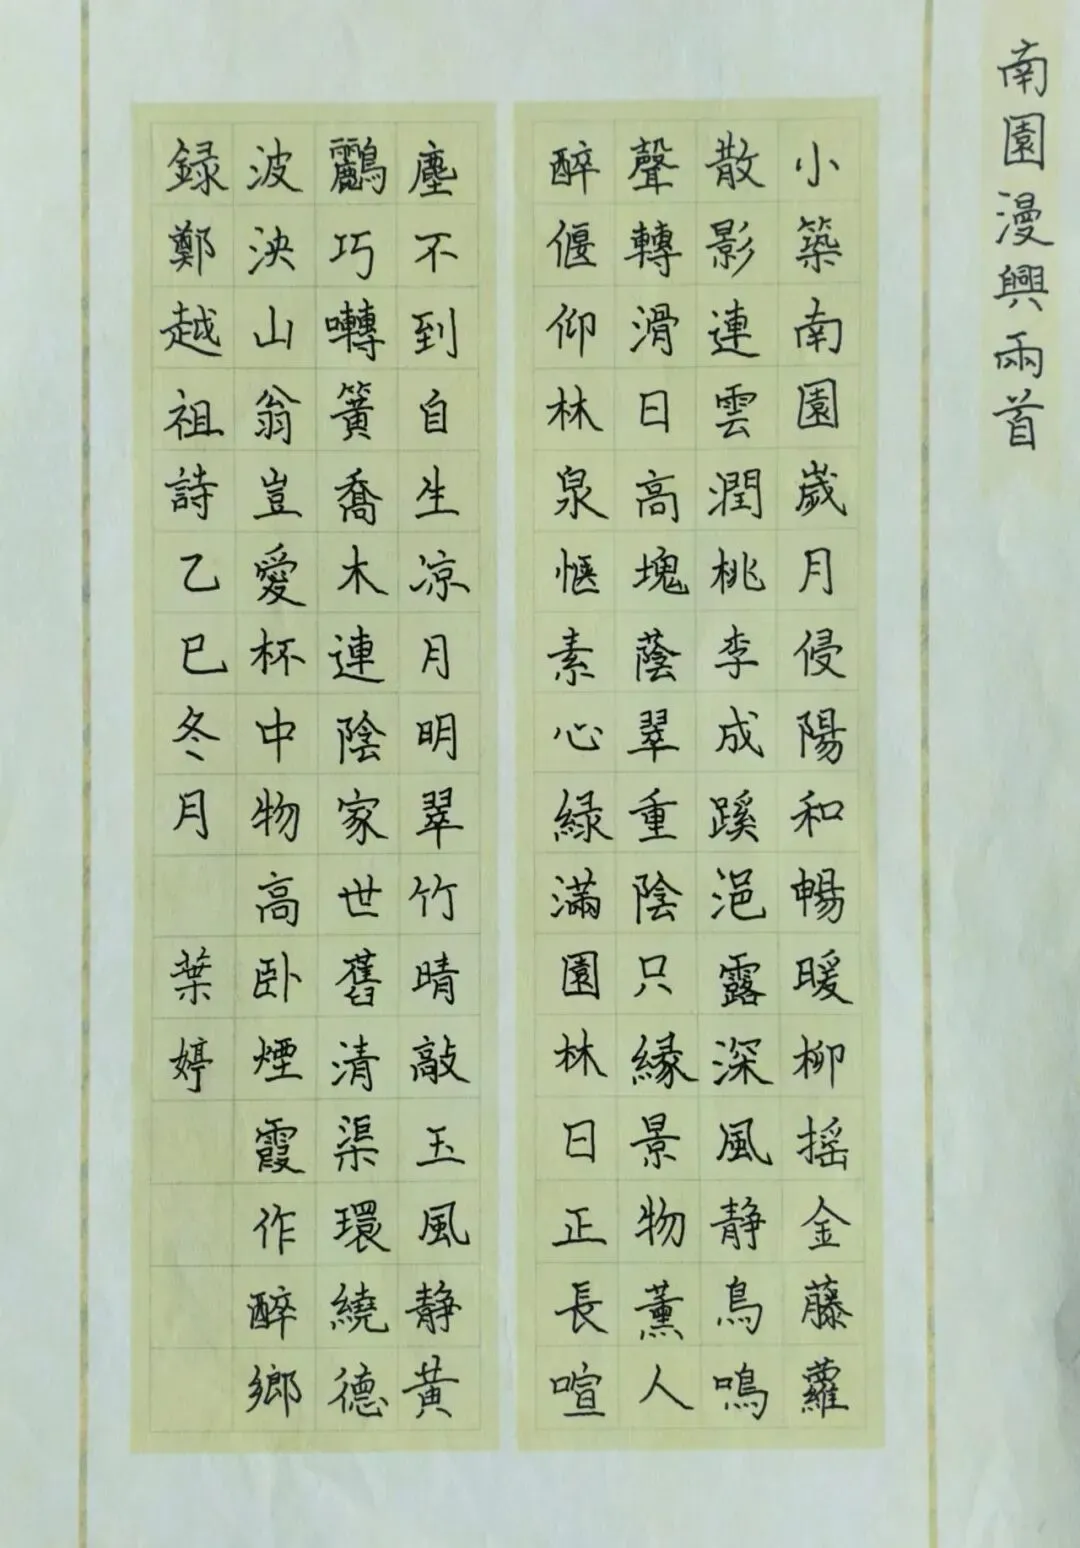 南園漫興兩首
小築南園歲月侵陽和暢暖柳摇金藤蘿
散影連雲潤桃李成蹊浥露深風静鳥鳴
聲轉滑日高塊蔭翠重陰只緣景物薰人
醉偃仰林泉惬素心緑滿園林日正長喧
塵不到自生凉月明翠竹晴敲玉風静黄
鸝巧囀簧喬木連陰家世舊清渠環繞德
波泱山翁豈愛杯中物高卧煙霞作醉鄉
録鄭越祖詩乙巳冬月 葉婷